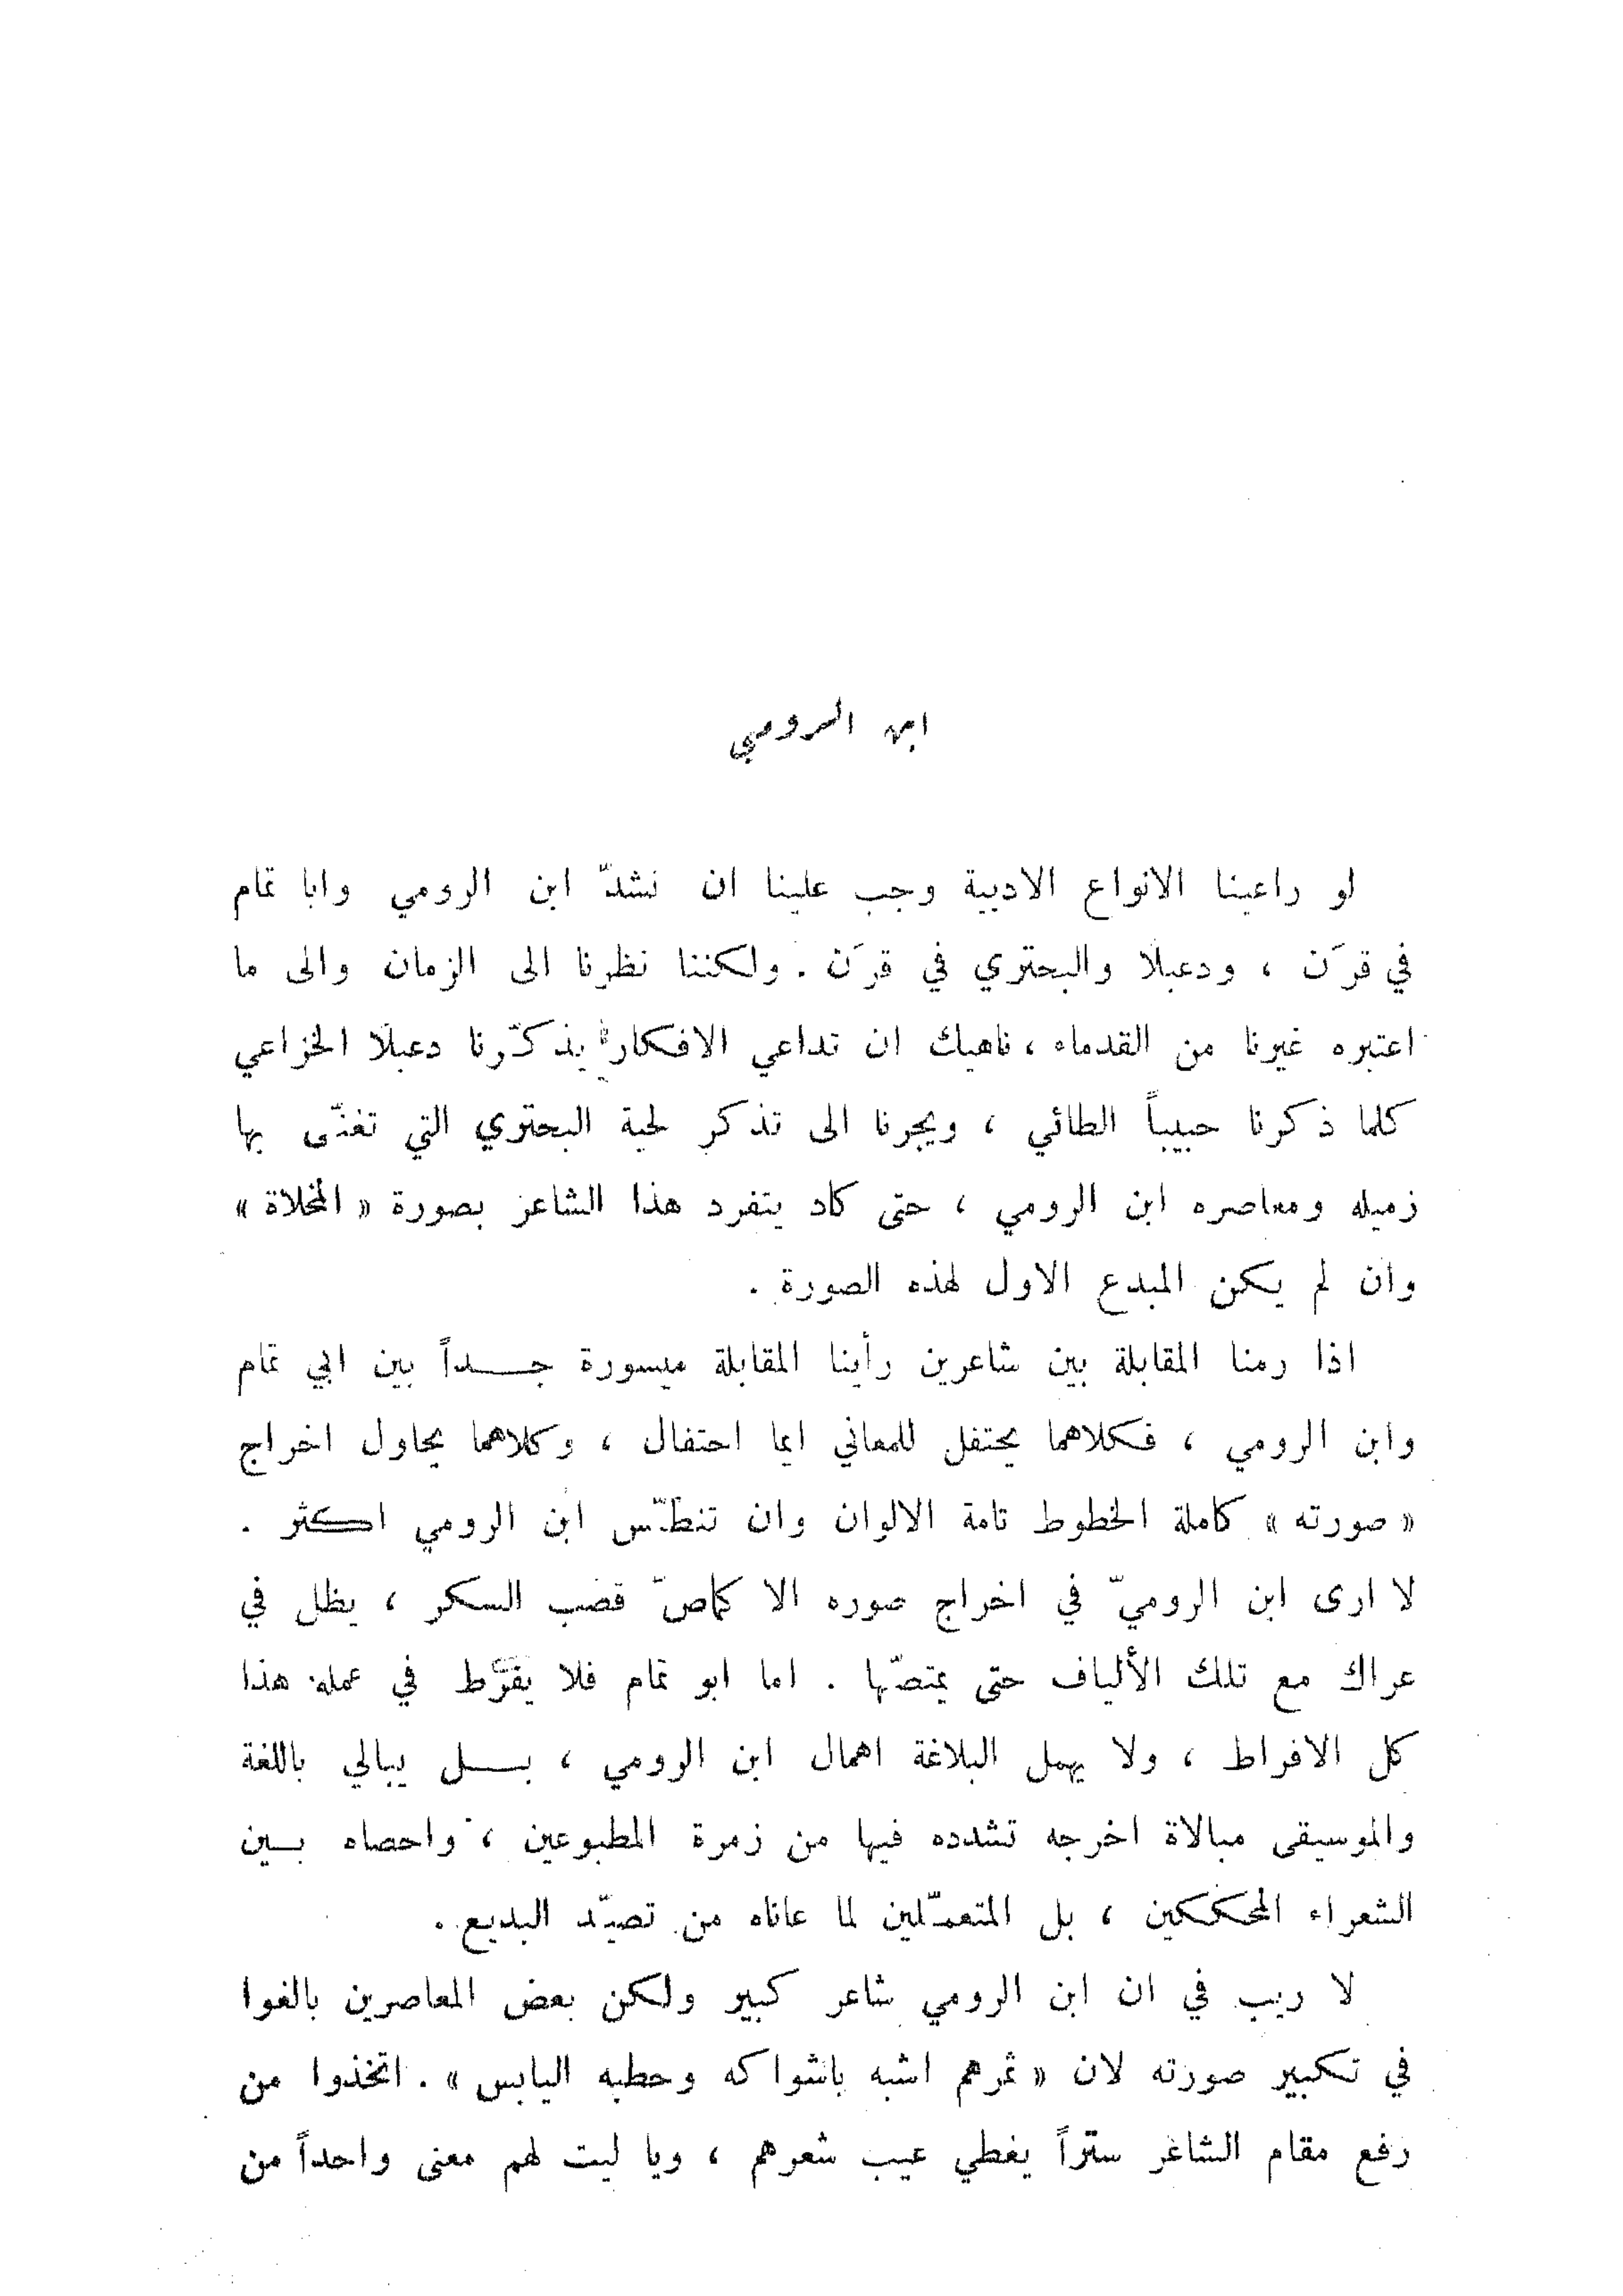 ابن الرومي
لو راعينا الانواع الادبية وجب علينا ان نشدّ ابن الرومي وابا تمام
في قرَن ، ودعبلا والبحتري في قرَن . ولكننا نظرنا الى الزمان والى ما
اعتبره غيرنا من القدماء ، ناهيك ان تداعي الافكار يذكّرنا دعبلًا الخزاعي
كلما ذكرنا حبيباً الطائي ، ويجرنا الى تذكر لحية البحتري التي تغنّى بها
زميله ومعاصره ابن الرومي ، حتى كاد يتفرد هذا الشاعر بصورة « المخلاة »
وان لم يكن المبدع الاول لهذه الصورة .
اذا رمنا المقابلة بين شاعرين رأينا المقابلة ميسورة جــداً بين ابي تمام
وابن الرومي ، فكلاهما يحتفل للمعاني ايما احتفال ، وكلاهما يحاول اخراج
« صورته » كاملة الخطوط تامة الالوان وان تنطّس ابن الرومي اكثر .
لا ارى ابن الروميّ في اخراج صوره الا كماصّ قصب السكر ، يظل في
عراك مع تلك الألياف حتى يمتصّها . اما ابو تمام فلا يفرّط في عمله هذا
كل الافراط ، ولا يهمل البلاغة اهمال ابن الرومي ، بــل يبالي باللغة
والموسيقى مبالاة اخرجه تشدده فيها من زمرة المطبوعين ، واحصاه بــين
الشعراء المحككين ، بل المتعمّلين لما عاناه من تصيّد البديع .
لا ريب في ان ابن الرومي شاعر كبير ولكن بعض المعاصرين بالغوا
في تكبير صورته لان « ثمرهم اشبه باشواكه وحطبه اليابس » . اتخذوا من
رفع مقام الشاعر ستراً يغطي عيب شعرهم ، ويا ليت لهم معنى واحداً من